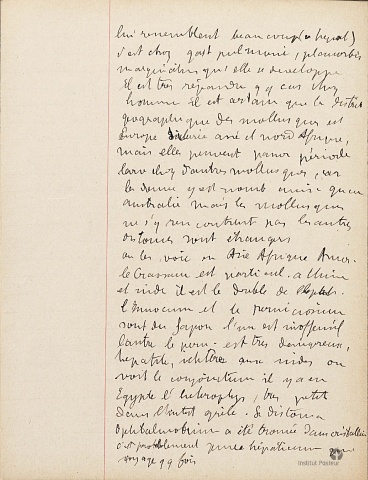 lui ressemblent beaucoup (a hepat)
c'est chez gast pulmoné, planorbis
marginatus qu'elle se developpe
Il est très répandu qq cas chez
homme Il est certain que la distrib
geographique des mollusques est
Europe Siberie asie et nord Afrique,
mais elle peuvent passer période
larv chez d'autres mollusques, car
la douve y est nomb
australie mais les mollusques
ne s'y rencontrent pas les autres
distomes sont étrangers
on les voie en Asie Afrique Amer.
le Crassum est partical. a chine
et inde il est le double de l'hépat.
l'Innocuum et le perniciosum
sont du Japon l'un est inoffensif
l'autre le pern. est très dangereux,
hépatite, ichtère aux indes on
voit le conjunctum il y a en
Egypte l'heterophys, très petit
dans l'intest grêle. Le distoma
ophtalmobium a été trouvée dans cristallin
c'est probablement jeune hépaticum
voyage qq fois
Institut Pasteur